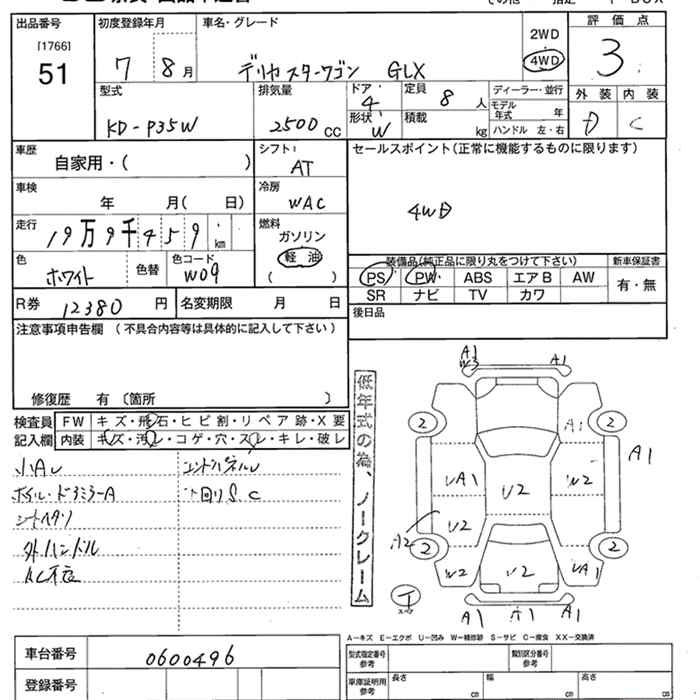 出品番号 初度登録年月 車名・グレード 2WD 評価点
[1766]
51 7 8月 デリカ スターワゴン GLX 4WD 3
型式 排気量 ドア・ 定員 ディーラー・並行 外装 内装
4 8人 モデル年式 年 D C
KD-P35W 2500CC 形状 W 積載 kg ハンドル 左・右
車歴 シフト セールスポイント(正常に機能するものに限ります)
自家用・( ) AT
車検 冷房
年 月( 日) WAC 4WD
走行 燃料
19万9千459km ガソリン
色 色替 色コード 軽油 装備品(純正品に限り丸をつけて下さい) 新車保証書
ホワイト W09 ( ) PS PW ABS エアB AW 有・無
SR ナビ TV カワ
R券 12380円 名変期限 月 日 後日品
注意事項申告欄(不具合内容等は具体的に記入して下さい)
修復歴 有 〔箇所 〕
検査員 FW キズ・飛石・ヒビ割・リペア跡・X要
記入欄 内装 キズ・汚レ・コゲ・穴・スレ・キレ・破レ
小AU
シートヘタリ
外ハンドル
低年式の為、ノークレーム
A1 A1
W3
2 A1 2 A1
UA1 U2 W2
U2
A2 2 2
W2 U2 UA1
A1 A1 A1
A-キズ E-エクボ U-凹み W-補修跡 S-サビ C-腐食 XX-交換済
車台番号 0600496 型式指定番号 参考 類別区分番号 参考
登録番号 車庫証明用 参考 長さ 幅 高さ